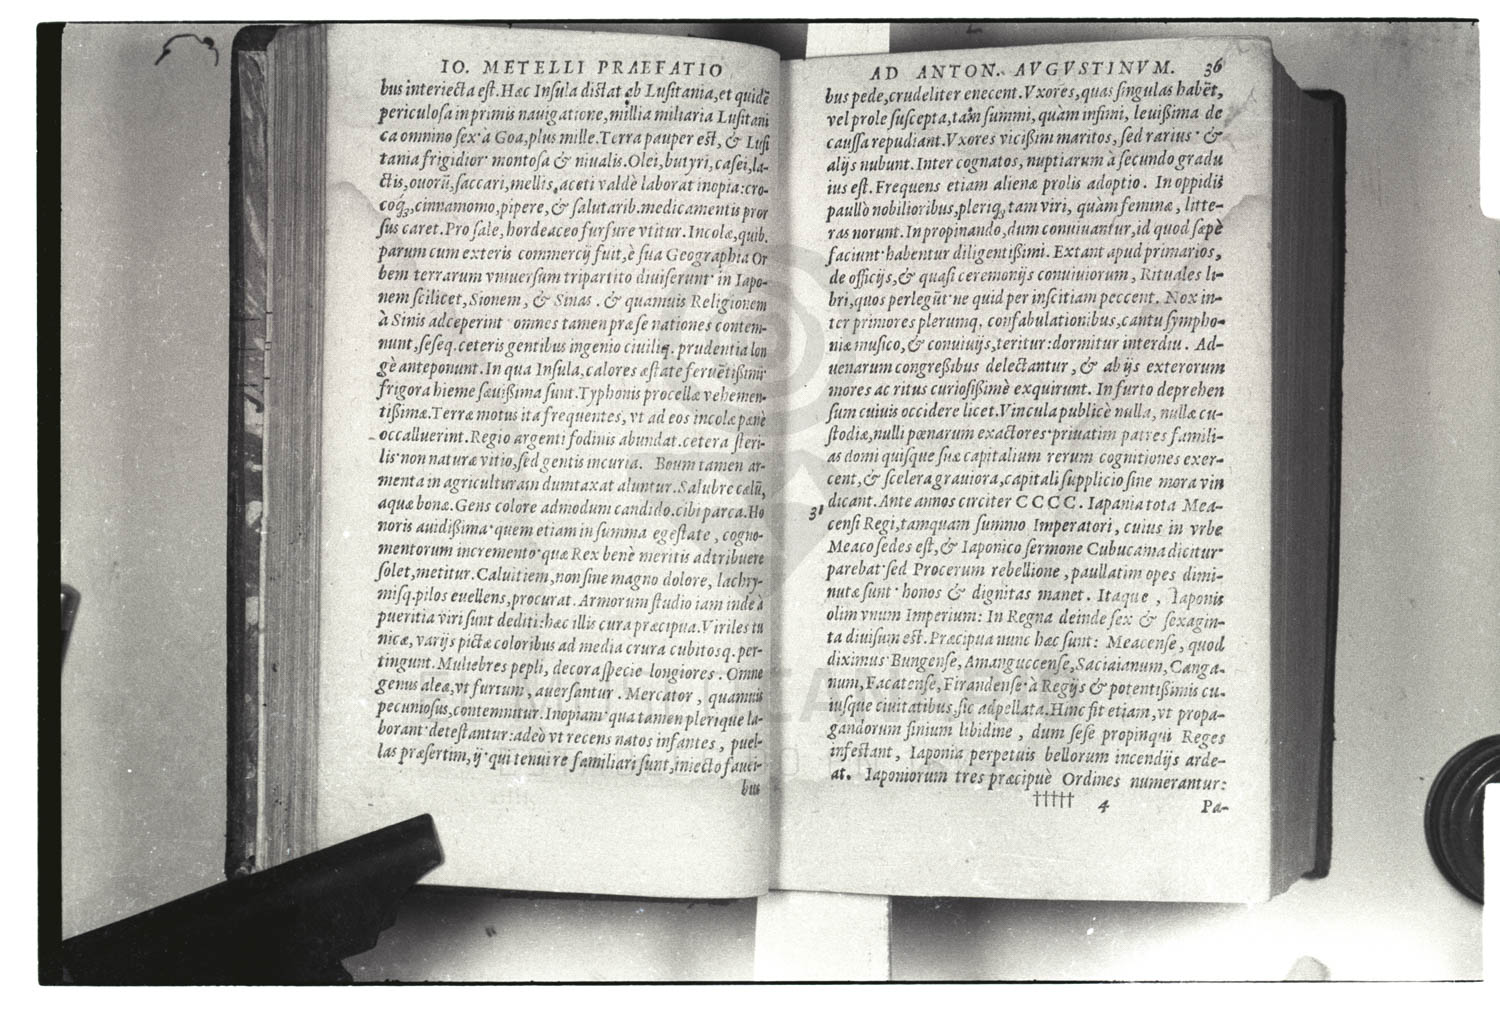 IO. METELLI PRAEFATIO
bus interiecta est. Hæc Insula distat ab Lusitania, et quidē
periculosa in primis nauigatione, millia miliaria Lusitani
ca omnino sex· à Goa, plus mille. Terra pauper est, & Lusi
tania frigidior· montosa & niualis. Olei, butyri, casei, la-
ctis, ouorū, saccari, mellis, aceti valdè laborat inopia: cro-
coq́;, cinnamomo, pipere, & salutarib. medicamentis pror
sus caret. Pro sale, hordeaceo furfure vtitur. Incolæ, quib.
parum cum exteris commercij fuit, è sua Geographia Or
bem terrarum vniuersum tripartito diuiserunt· in Iapo-
nem scilicet, Sionem, & Sinas. & quamuis Religionem
à Sinis adceperint· omnes tamen præ se nationes contem-
nunt, seseq. ceteris gentibus ingenio ciuiliq. prudentia lon
gè anteponunt. In qua Insula, calores æstate feruētißimi·
frigora hieme sæuißima sunt. Typhonis procellæ vehemen-
tißimæ. Terræ motus ita frequentes, vt ad eos incolæ pænè
occalluerint. Regio argenti fodinis abundat. cetera steri-
lis· non naturæ vitio, sed gentis incuria. Boum tamen ar-
menta in agriculturam dumtaxat aluntur. Salubre cælū,
aquæ bonæ. Gens colore admodum candido. cibi parca. Ho
noris auidißima· quem etiam in summa egestate, cogno-
mentorum incremento· quæ Rex benè meritis adtribuere
solet, metitur. Caluitiem, non sine magno dolore, lachry-
misq. pilos euellens, procurat. Armorum studio iam inde à
pueritia viri sunt dediti: hæc illis cura præcipua. Viriles tu
nicæ, varijs pictæ coloribus ad media crura cubitosq. per-
tingunt. Muliebres pepli, decora specie longiores. Omne
genus aleæ, vt furtum, auersantur. Mercator, quamuis
pecuniosus, contemnitur. Inopiam· qua tamen plerique la-
borant· detestantur: adeò vt recens natos infantes, puel-
las præsertim, ij· qui tenui re familiari sunt, iniecto fauci-
bus
AD ANTON. AVGVSTINVM. 36
bus pede, crudeliter enecent. Vxores, quas singulas habēt,
vel prole suscepta, tam summi, quàm infimi, leuißima de
caussa repudiant. Vxores vicißim maritos, sed rarius· &
alijs nubunt. Inter cognatos, nuptiarum à secundo gradu
ius est. Frequens etiam alienæ prolis adoptio. In oppidis
paullò nobilioribus, pleriq́; tam viri, quàm feminæ, litte-
ras norunt. In propinando, dum conuiuantur, id quod sæpè
faciunt· habentur diligentißimi. Extant apud primarios,
de officijs, & quasi ceremonijs conuiuiorum, Rituales li-
bri, quos perlegūt· ne quid per inscitiam peccent. Nox in-
ter primores plerumq. confabulationibus, cantu sympho-
niæ musico, & conuiuijs, teritur: dormitur interdiu. Ad-
uenarum congreßibus delectantur, & ab ijs exterorum
mores ac ritus curiosißimè exquirunt. In furto deprehen
sum cuiuis occidere licet. Vincula publicè nulla, nullæ cu-
stodiæ, nulli pœnarum exactores· priuatim patres famili-
as domi quisque suæ capitalium rerum cognitiones exer-
cent, & scelera grauiora, capitali supplicio sine mora vin
dicant. Ante annos circiter CCCC. Iapania tota Mea-
31
censi Regi, tamquam summo Imperatori, cuius in vrbe
Meaco sedes est, & Iaponico sermone Cubucama dicitur·
parebat· sed Procerum rebellione, paullatim opes dimi-
nutæ sunt· honos & dignitas manet. Itaque, Iaponis
olim vnum Imperium: In Regna deinde sex & sexagin-
ta diuisum est. Præcipua nunc hæc sunt: Meacense, quod
diximus· Bungense, Amanguccense, Saciaianum, Canga-
num, Facatense, Firandense· à Regijs & potentißimis cu-
iusque ciuitatibus, sic adpellata. Hinc fit etiam, vt propa-
gandorum finium libidine, dum sese propinqui Reges
infestant, Iaponia perpetuis bellorum incendijs arde-
at. Iaponiorum tres præcipuè Ordines numerantur:
††††† 4 Pa-